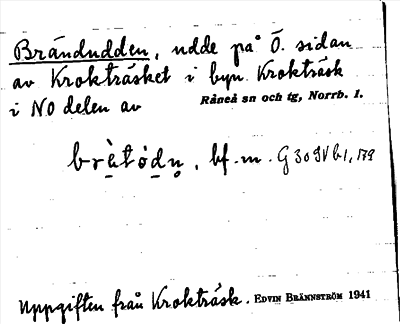 Brändudden, udde på Ö. sidan
av Krokträsket i byn Krokträsk
i NO delen av
Råneå sn och tg, Norrb. l.
brὲtόdn̥, bf. m.
Uppgiften från Krokträsk. EDVIN BRÄNNSTRÖM 1941